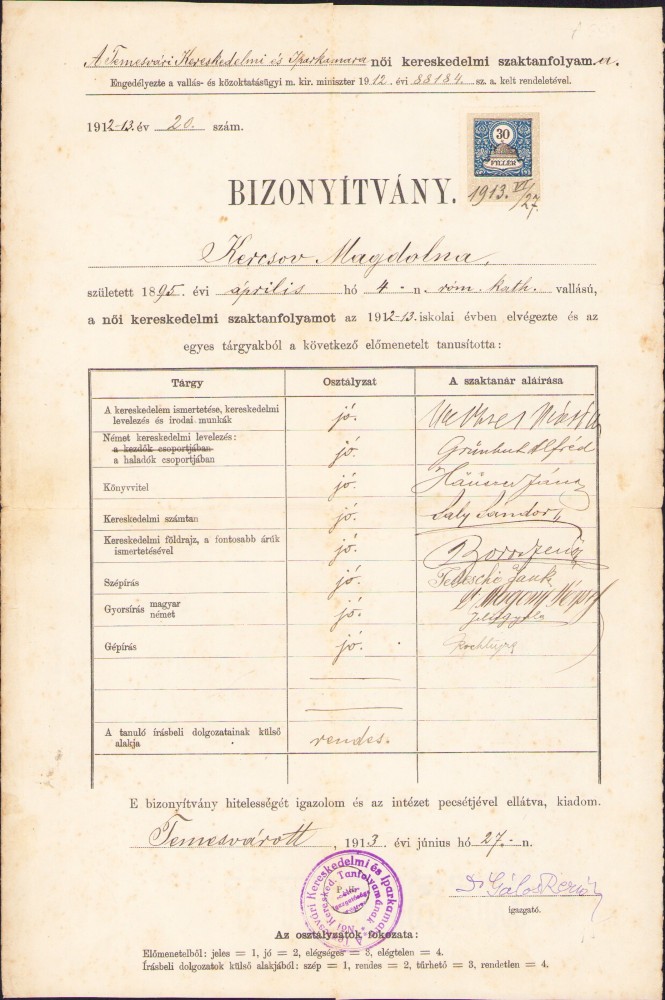 A Temesvári Kereskedelmi és Iparkamara női kereskedelmi szaktanfolyam.a.
Engedélyezte a vallás- és közoktatásügyi m. kir. miniszter 1912. évi 88184. sz. a. kelt rendeletével.
1912-13. év 20. szám.
30
FILLÉR
1913. VI/27.
BIZONYÍTVÁNY.
Kercsov Magdolna,
született 1895. évi április hó 4-n. róm. kath. vallású,
a női kereskedelmi szaktanfolyamot az 1912-13. iskolai évben elvégezte és az
egyes tárgyakból a következő előmenetelt tanusította:
Tárgy Osztályzat A szaktanár aláirása
A kereskedelem ismertetése, kereskedelmi
levelezés és irodai munkák jó.
Német kereskedelmi levelezés:
a kezdők csoportjában
a haladók csoportjában jó. Alfréd
Könyvvitel jó. János
Kereskedelmi számtan jó. Sándor
Kereskedelmi földrajz, a fontosabb árúk
ismertetésével jó. Boros Jenő
Szépírás jó.
Gyorsírás magyar
német jó.
Gépírás jó.
A tanuló írásbeli dolgozatainak külső
alakja rendes.
E bizonyítvány hitelességét igazolom és az intézet pecsétjével ellátva, kiadom.
Temesvárott, 1913. évi június hó 27-n.
Dr Gálos Rezső
igazgató.
Az osztályzatok fokozata:
Előmenetelből: jeles = 1, jó = 2, elégséges = 3, elégtelen = 4.
Írásbeli dolgozatok külső alakjából: szép = 1, rendes = 2, tűrhető = 3, rendetlen = 4.